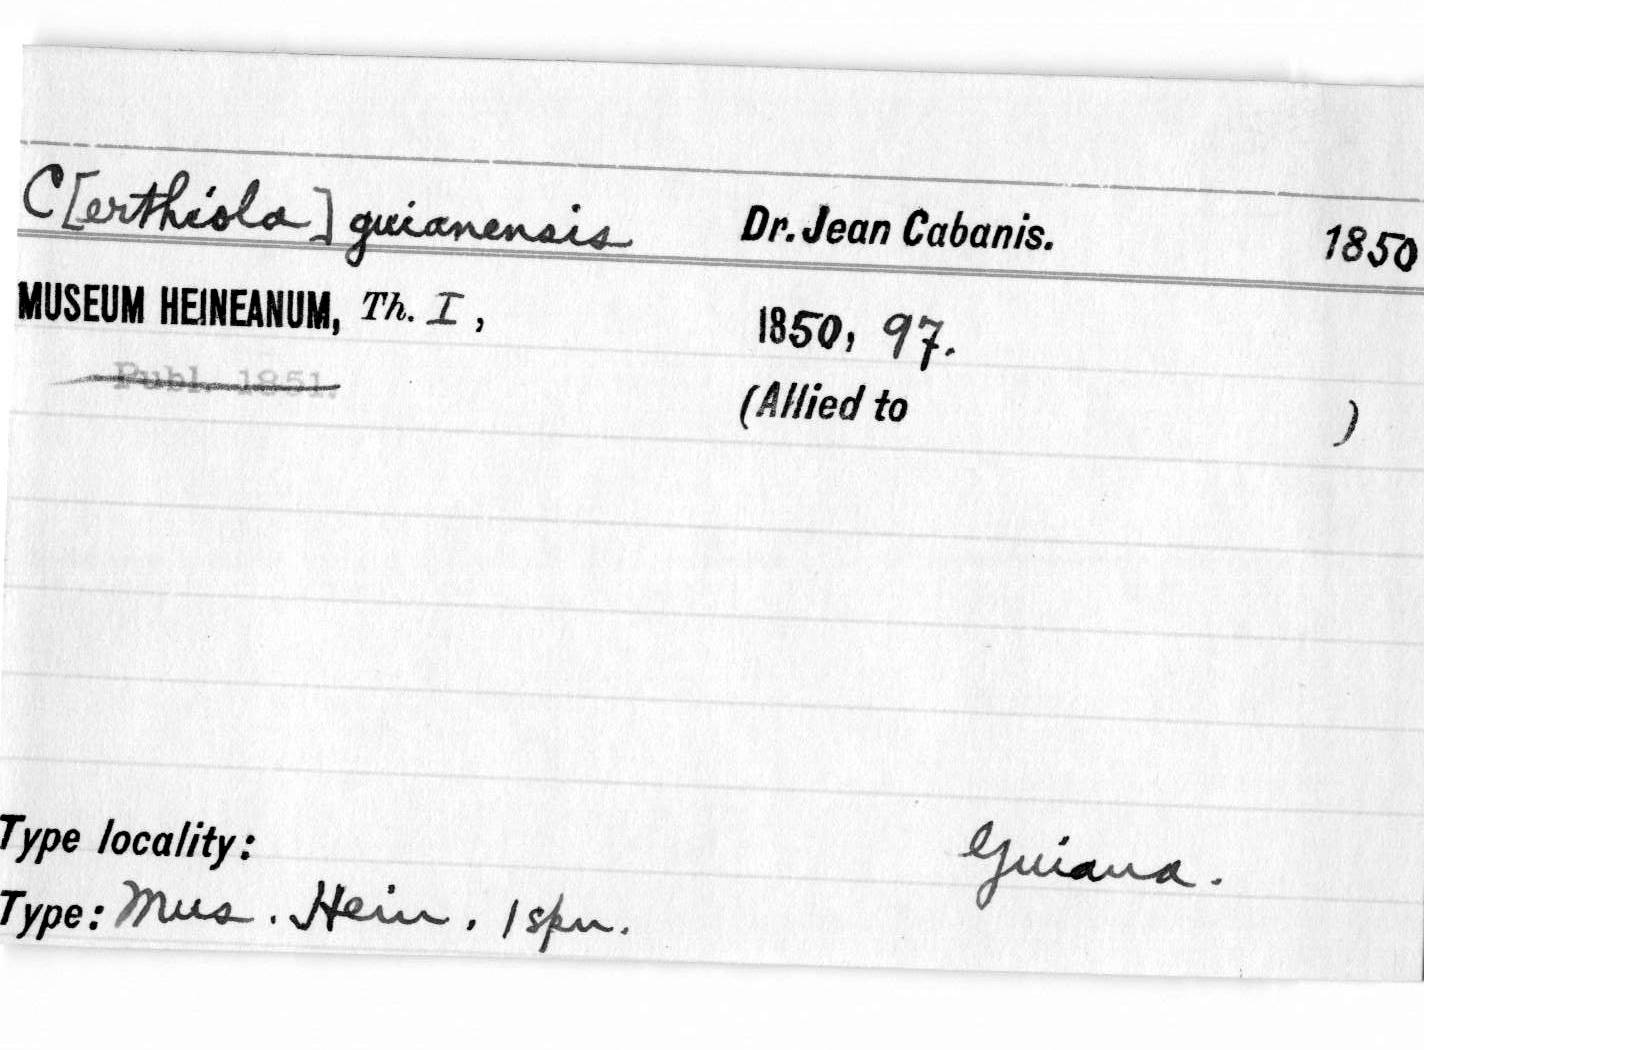 C[erthiola] guianensis Dr. Jean Cabanis. 1850
MUSEUM HEINEANUM, Th. I, 1850, 97.
Publ. 1851.
(Allied to )
Type locality: Guiana.
Type: Mus. Hein, 1 spn.